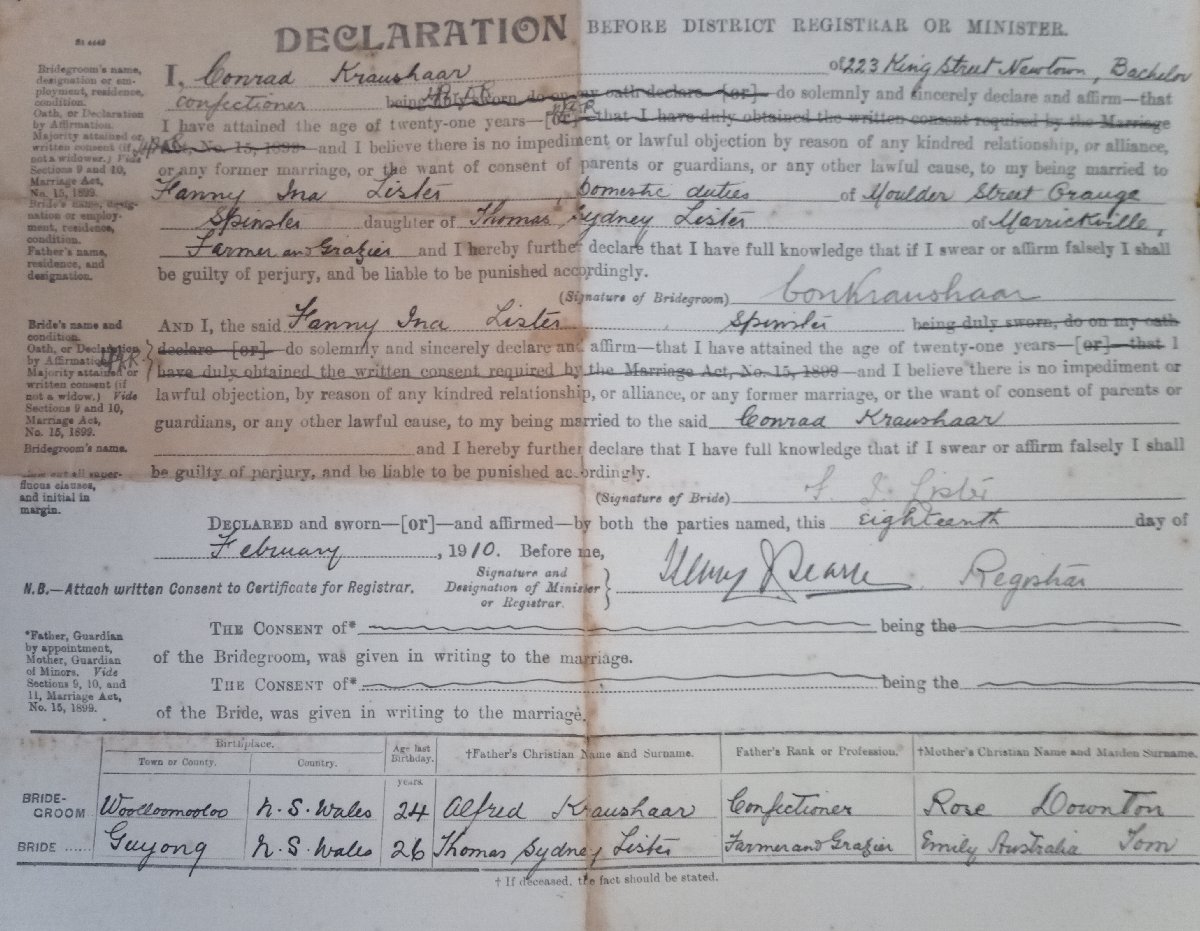 St 4649
DECLARATION BEFORE DISTRICT REGISTRAR OR MINISTER.
Bridegroom's name, designation or employment, residence, condition.
Oath, or Declaration by Affirmation.
Majority attained or written consent (if not a widower.) Vide Sections 9 and 10, Marriage Act, No. 15, 1899.
Bride's name, designation or employment, residence, condition.
Father's name, residence, and designation.
I, Conrad Kraushaar of 223 King Street Newtown, Bachelor
confectioner being duly sworn, do on my oath declare—[or]—do solemnly and sincerely declare and affirm—that
I have attained the age of twenty-one years—[or]—that I have duly obtained the written consent required by the Marriage
Act, No. 15, 1899—and I believe there is no impediment or lawful objection by reason of any kindred relationship, or alliance,
or any former marriage, or the want of consent of parents or guardians, or any other lawful cause, to my being married to
Fanny Ina Lister Domestic duties of Moulder Street Orange
Spinster daughter of Thomas Sydney Lister of Marrickville,
Farmer and Grazier and I hereby further declare that I have full knowledge that if I swear or affirm falsely I shall
be guilty of perjury, and be liable to be punished accordingly.
(Signature of Bridegroom) Con Kraushaar
Bride's name and condition.
Oath, or Declaration by Affirmation.
Majority attained or written consent (if not a widow.) Vide Sections 9 and 10, Marriage Act, No. 15, 1899.
Bridegroom's name.
AND I, the said Fanny Ina Lister, Spinster being duly sworn, do on my oath
declare—[or]—do solemnly and sincerely declare and affirm—that I have attained the age of twenty-one years—[or]—that I
have duly obtained the written consent required by the Marriage Act, No. 15, 1899—and I believe there is no impediment or
lawful objection, by reason of any kindred relationship, or alliance, or any former marriage, or the want of consent of parents or
guardians, or any other lawful cause, to my being married to the said Conrad Kraushaar
and I hereby further declare that I have full knowledge that if I swear or affirm falsely I shall
be guilty of perjury, and be liable to be punished accordingly.
superfluous clauses, and initial in margin.
(Signature of Bride) F. I. Lister
DECLARED and sworn—[or]—and affirmed—by both the parties named, this eighteenth day of
February, 1910. Before me,
N.B.—Attach written Consent to Certificate for Registrar.
Signature and Designation of Minister or Registrar. Henry J Pearse Registrar
*Father, Guardian by appointment, Mother, Guardian of Minors. Vide Sections 9, 10, and 11, Marriage Act, No. 15, 1899.
THE CONSENT of* being the
of the Bridegroom, was given in writing to the marriage.
THE CONSENT of* being the
of the Bride, was given in writing to the marriage.
Birthplace. Age last Birthday. †Father's Christian Name and Surname. Father's Rank or Profession. †Mother's Christian Name and Maiden Surname.
Town or County. Country.
years.
BRIDEGROOM Woolloomooloo N. S. Wales 24 Alfred Kraushaar Confectioner Rose Downton
BRIDE ...... Guyong N. S. Wales 26 Thomas Sydney Lister Farmer and Grazier Emily Australia Tom
† If deceased, the fact should be stated.